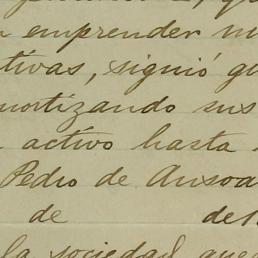 emprender
tivas, siguió
mortizando sus
activo hasta
Pedro de Ansoa
de de
la sociedad que